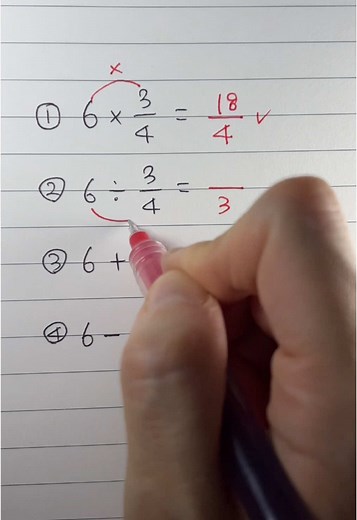 ×
① 6 × 3/4 = 18/4 ✓
② 6 ÷ 3/4 = /3
③ 6 +
④ 6 −